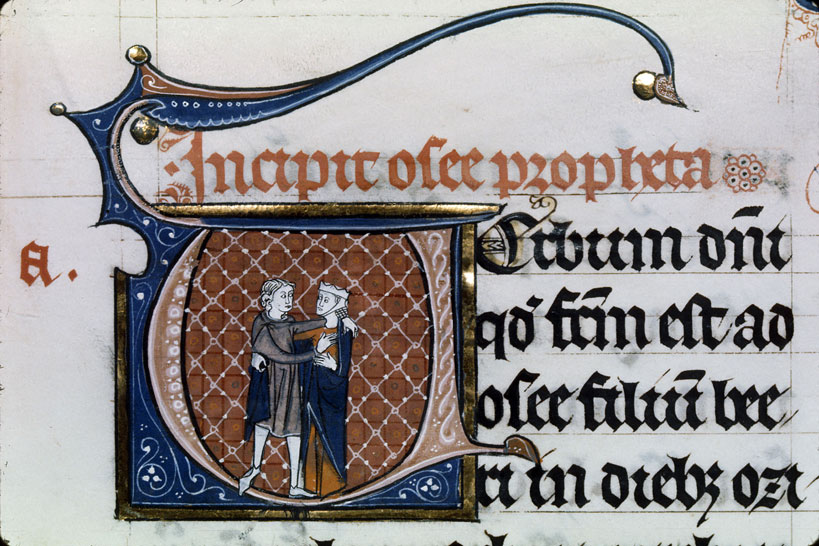 Incipit osee propheta
a.
VErbum dñi
qđ fcm̄ est ad
osee filiū bee
ri in diebꝫ ozi